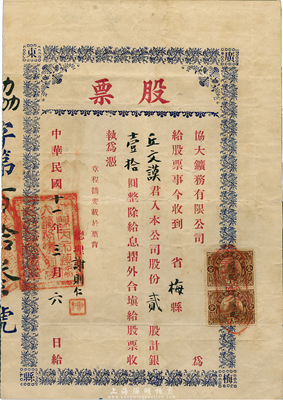 廣
東
梅
縣
股票
協大鑛務有限公司 為
給股票事今收到 省 梅 縣
丘文謨 君入本公司股份 貳 股計銀
壹拾 圓整除給息摺外合塡給股票收
執為憑
章程摘要載於票背
總理 謝則仁
中華民國十 年 月六 日給
協字第 百拾 號